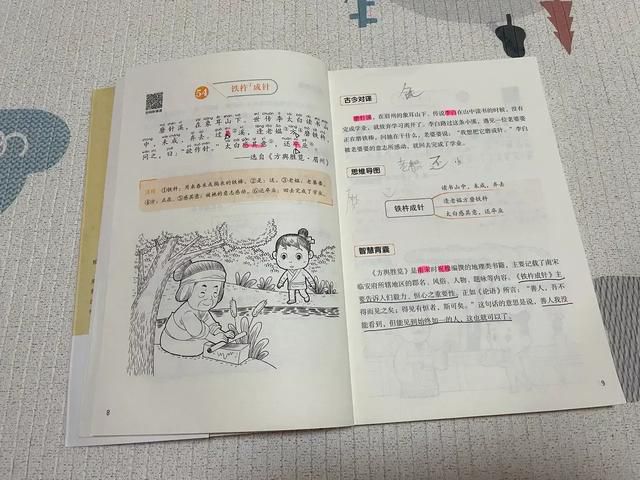 54 铁杵¹成针
磨针溪,在象耳山下。世传李太白读书山
中,未成,弃去。过是溪,逢老媪方磨铁杵,
问之,曰:“欲作针。”太白感其意,还卒业。
——选自《方舆胜览·眉州》
注释 ①铁杵:用来舂米或捣衣的铁棒。②是:这。③老媪:老婆婆。
④方:正在。⑤感其意:被她的意志感动。⑥还卒业:回去完成了学业。
8
古今对译
磨针溪,在眉州的象耳山下。传说李白在山中读书的时候,没有
完成学业,就放弃学习离开了。李白路过这条小溪,遇见一位老婆婆
正在磨铁棒,问她在干什么,老婆婆说:“我想把它磨成针。”李白
被老婆婆的意志所感动,就回去完成了学业。
思维导图
读书山中,未成,弃去
铁杵成针
逢老媪方磨铁杵
太白感其意,还卒业
智慧背囊
《方舆胜览》是南宋时祝穆编撰的地理类书籍,主要记载了南宋
临安府所辖地区的郡名、风俗、人物、题咏等内容。《铁杵成针》主
要告诉人们毅力、恒心之重要性,正如《论语》所言:“善人,吾不
得而见之矣;得见有恒者,斯可矣。”这句话的意思是说,善人我没
能看到,但能见到始终如一的人,这也就可以了。
9